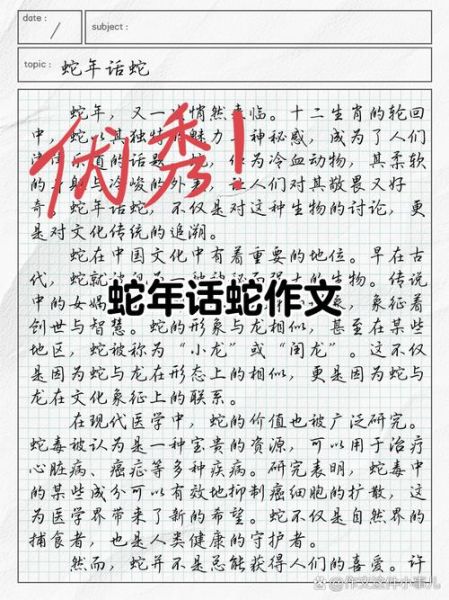 date :
subject :
topic : 蛇年话蛇
蛇年，又一次悄然来临。十二生肖的轮回
中，蛇以其独特的魅力与神秘感，成为了人们
的话题。作为冷血动物，其柔软
的身躯与冷峻的外表，让人们对其敬畏又好
奇。蛇年话蛇，不仅是对这种生物的讨论，更
是对文化传统的追溯。
优秀！
蛇在中国文化中有着重要的地位。早在古
代，蛇就被的生物。传说
中的女娲，象征着
蛇年话蛇作文
创世与智慧。蛇的形象与龙相似，甚至在某些
地区，蛇被称为“小龙”或“闰龙”。这不仅
是因为蛇与龙在形态上的相似，更是因为蛇与
龙在文化象征上的联系。
在现代医学中，蛇的价值也被广泛研究。
蛇毒被认为是一种宝贵的资源，可以用于治疗
心脏病、癌症等多种疾病。研究表明，蛇毒中
的某些成分可以有效地抑制癌细胞的扩散，这
为医学界带来了新的希望。蛇不仅是自然界的
捕食者，也是人类健康的守护者。
然而，蛇并不是总能获得人们的喜爱。许
@作文这件小事儿